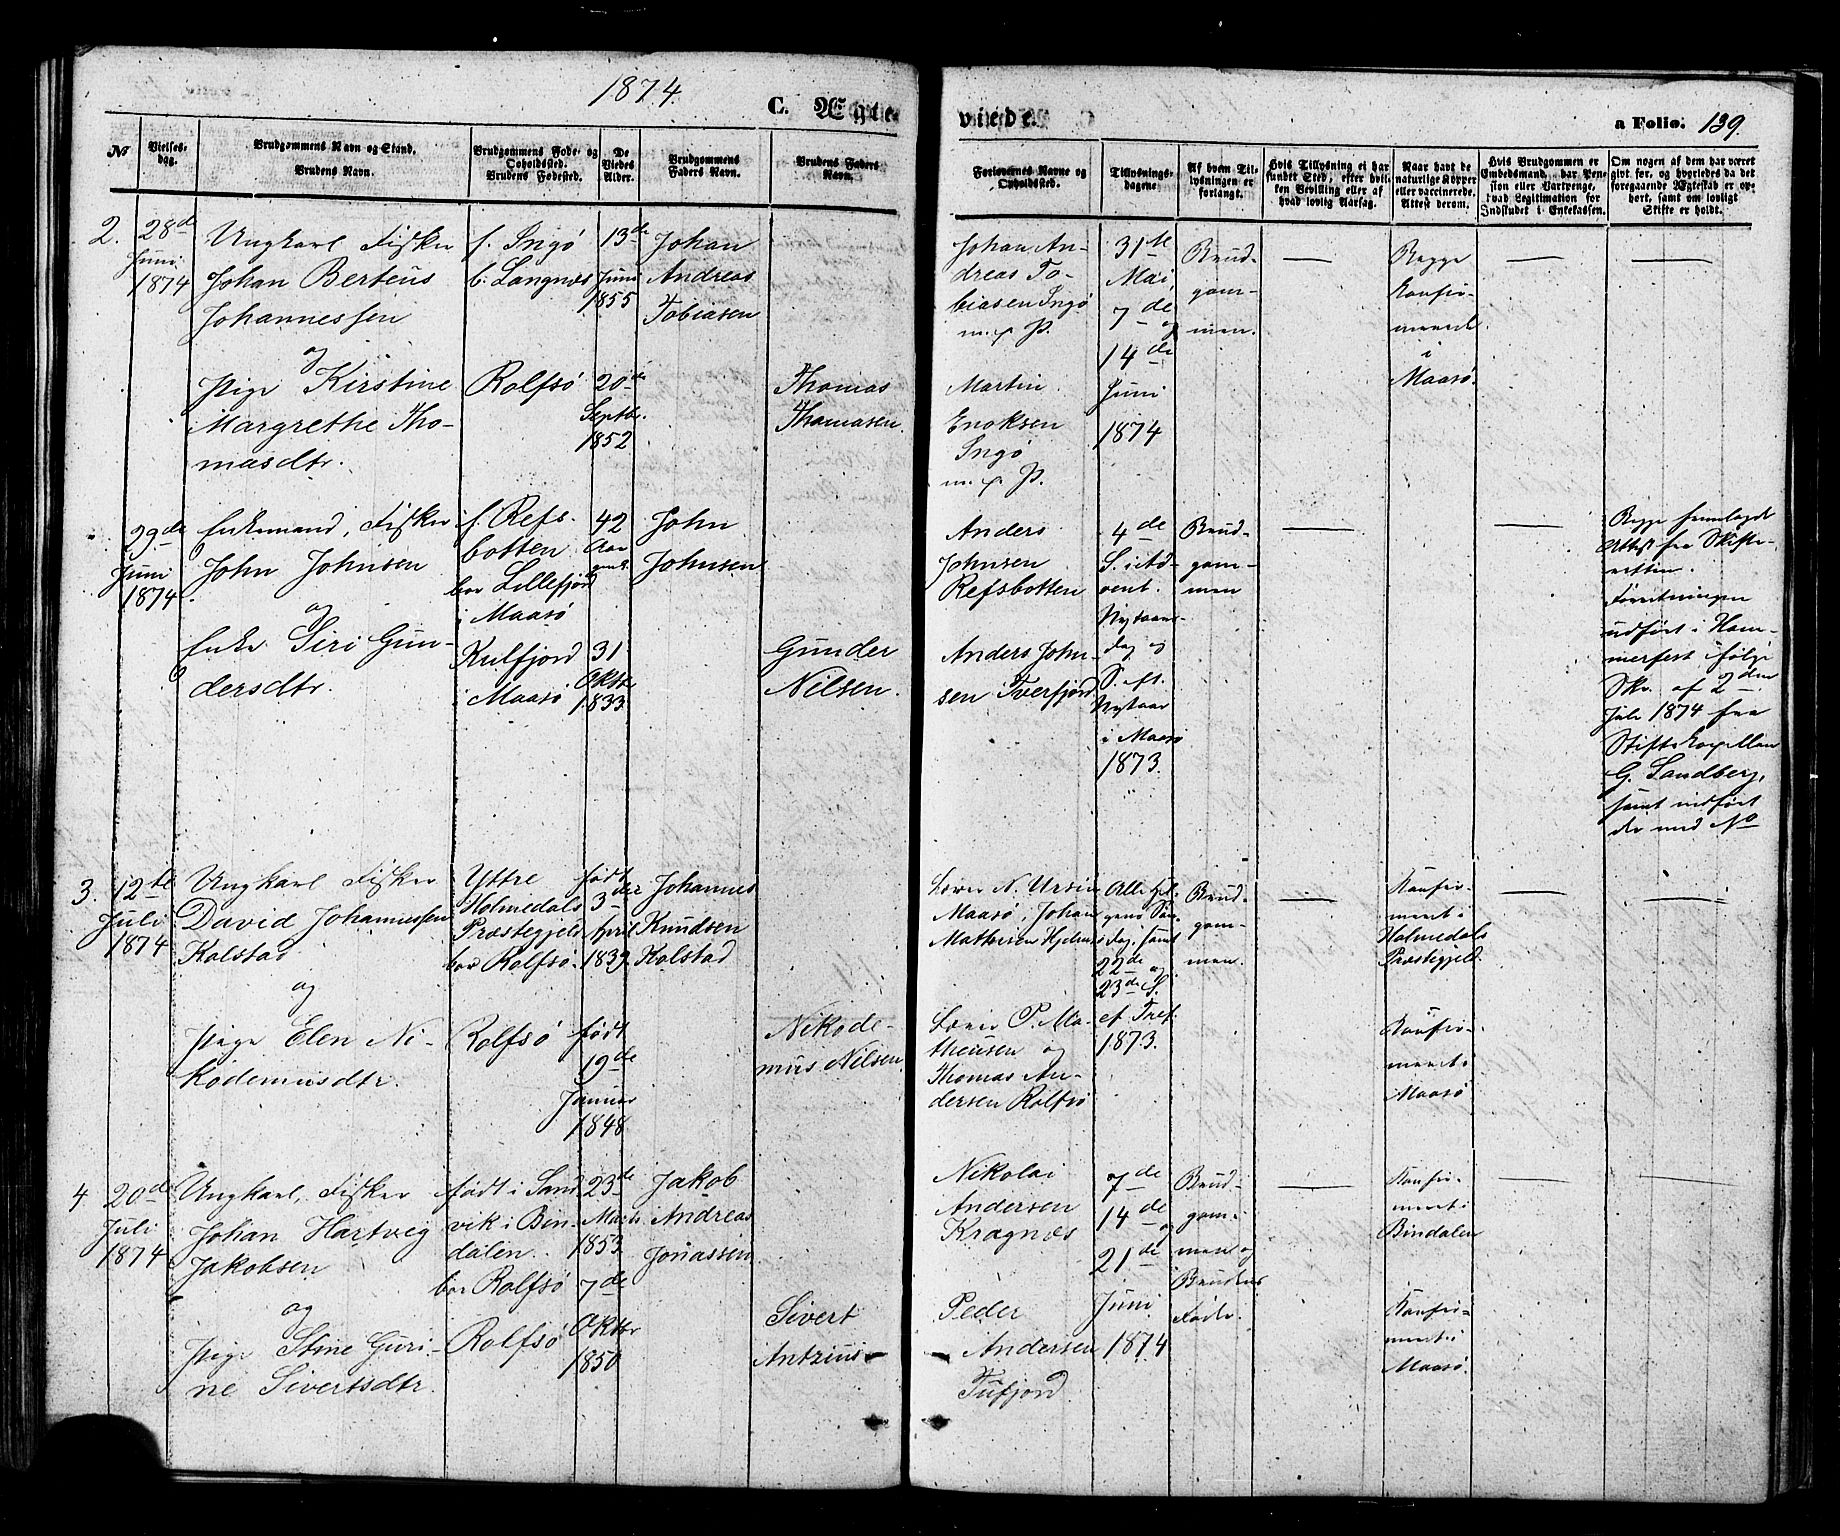 1874.
C. Ægte
viede.
a Folio. 139.
No
Vielses-
dag.
Brudgommens Navn og Stand.
Brudens Navn.
Brudgommens Føde- og
Opholdssted.
Brudens Fødested.
De
Viedes
Alder.
Brudgommens
Faders Navn.
Brudens Faders
Navn.
Forlovernes Navne og
Opholdssted.
Tillysnings-
dagene
Af hvem Til-
lysningen er
forlangt.
Hvis Tillysning ei har
fundet Sted, efter hvil-
ken Bevilling eller af
hvad lovlig Aarsag.
Naar havt de
naturlige Kopper
eller vaccinerede.
Attest derom.
Hvis Brudgommen er
Embedsmand, har Pen-
sion eller Vartpenge,
hvad Legitimation for
Indskudet i Enkekassen.
Om nogen af dem har været
givt før, og hvorledes da det
foregaaende Ægteskab er op-
hørt, samt om lovligt
Skifte er holdt.
2.
28de
Juni
1874
Ungkarl Fisker
Johan Berteus
Johannessen
og
Pige Kirstine
Margrethe Tho-
masdtr.
f. Ingø
b. Langnæs
Rolfsø
13de
Juni
1855
20de
Septbr.
1852
Johan
Andreas
Tobiasen
Thomas
Thomasen.
Johan An-
dreas To-
biasen Ingø
m. p. P.
Martin
Enoksen
Ingø
m. p. P.
31te
Mai,
7de
og
14de
Juni
1874
Brud-
gom-
men.
Begge
konfir-
merede
i
Maasø.
29de
Juni
1874
Enkemand, Fisker
John Johnsen
og
Enke Siri Gun-
dersdtr.
f. Refs-
botten
bor Lillefjord
i Maasø
Kulfjord
i Maasø
42
Aar
gml.
31
Oktbr
1833
John
Johnsen
Gunder
Nilsen.
Anders
Johnsen
Refsbotten
Anders John-
sen Tverfjord
4de
S. i Ad-
vent.
Nytaars-
dag og
S. eft.
Nytaar
i Maasø
1873.
Brud-
gom-
men
Begge fremlagt
Attest fra Skifte-
retten.
Forretningen
udført i Ham-
merfest ifølge
Skr. af 2den
Juli 1874 fra
Stiftskapellan
G. Sandberg,
samt indført
der med No
3.
12te
Juli
1874
Ungkarl Fisker
David Johannessen
Kolstad
og
Pige Elen Ni-
kodemusdtr.
Yttre
Holmedals
Præstegjeld
bor Rolfsø.
Rolfsø
født
3die
April
1839
født
19de
Januar
1848
Johannes
Knudsen
Kolstad
Nikode-
mus Nilsen.
Lærer N. Ursin
Maasø, Johan
Mathisen Hjelmsø
Lærer P. Ma-
theusen og
Thomas An-
dersen Rolfsø
Alle Hel-
gens Søn-
dag, samt
22de og
23de S.
ef. Tref.
1873.
Brud-
gom-
men.
Konfir-
meret i
Holmedals
Præstegjeld.
Konfir-
meret i
Maasø
4
20de
Juli
1874
Ungkarl, Fisker
Johan Hartvig
Jakobsen
og
Pige Stine Guri-
ne Sivertsdtr.
født i Sand-
vik i Bin-
dalen.
bor Rolfsø
Rolfsø
23de
Marts
1853
7de
Oktbr
1850
Jakob
Andreas
Jonassen
Sivert
Antzius
Nikolai
Andersen
Kragnæs
Peder
Andersen
Tufjord
7de
14de
og
21de
Juni
1874
Brud-
gom-
men og
Brudens
Fader.
Konfir-
meret i
Bindalen
Konfir-
meret i
Maasø.